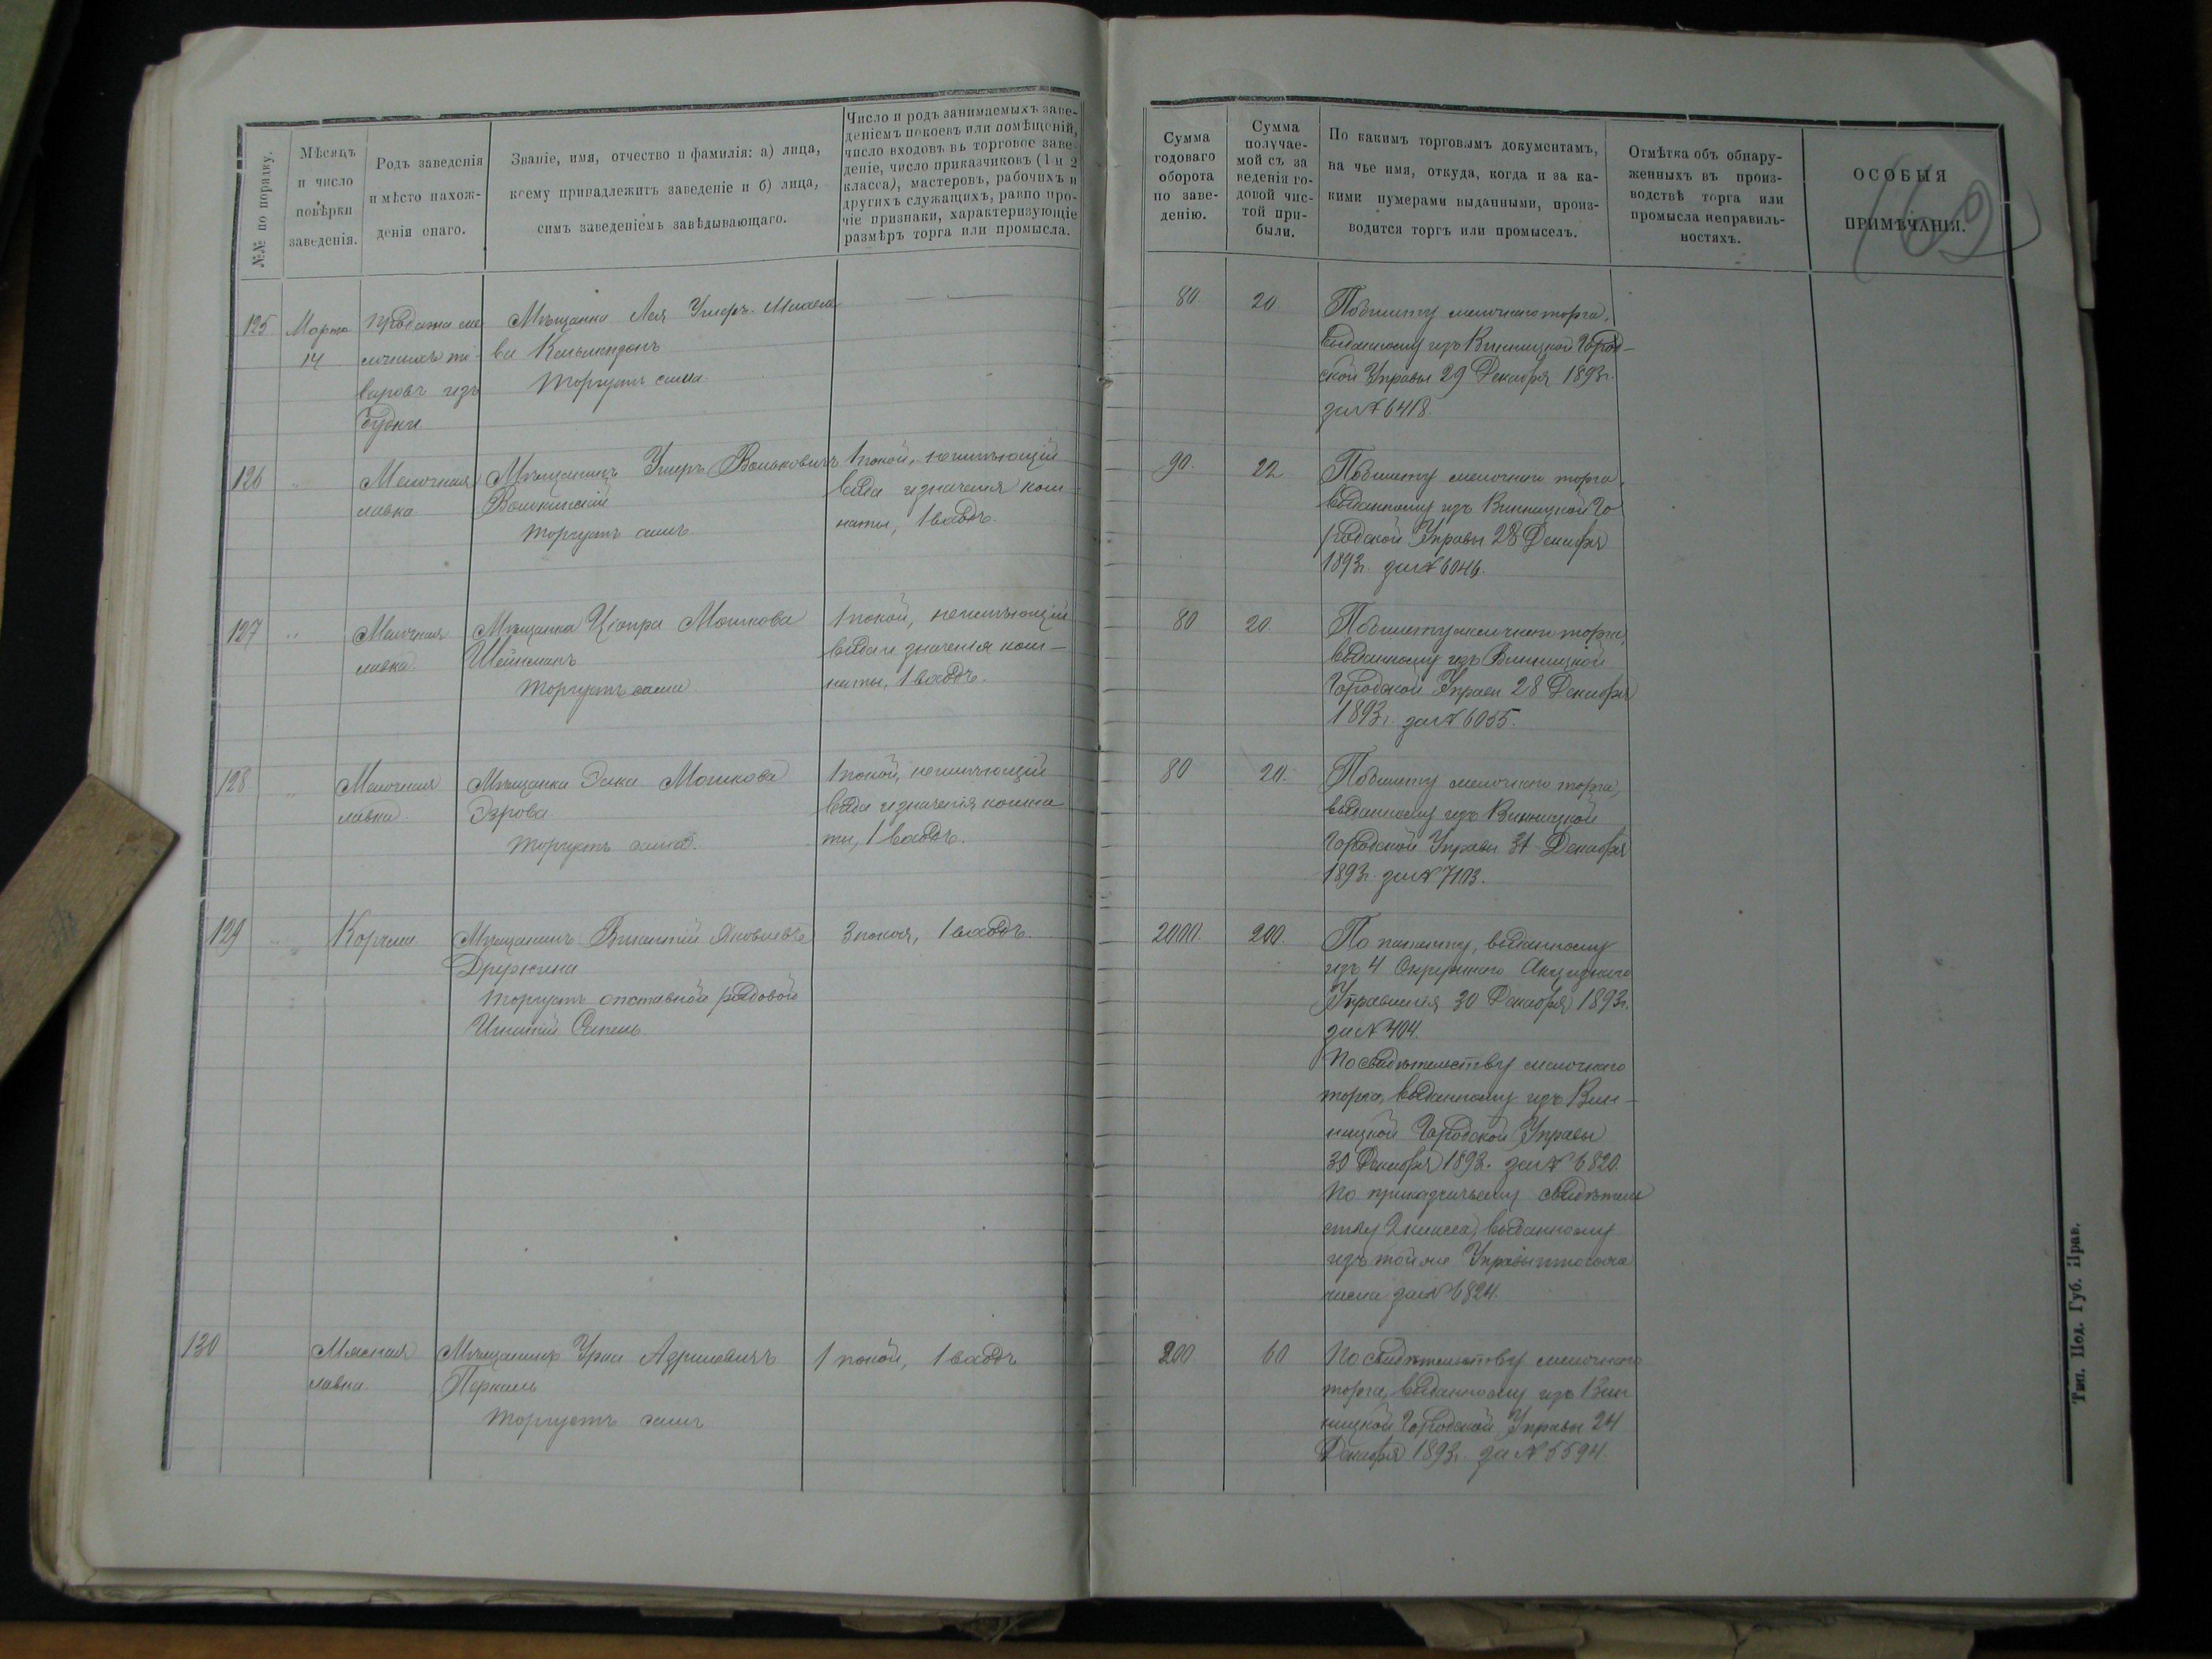 №№ по порядку.
Мѣсяцъ
и число
повѣрки
заведенія.
Родъ заведенія
и мѣсто нахож-
денія онаго.
Званіе, имя, отчество и фамилія: а) лица,
коему принадлежитъ заведеніе и б) лица,
симъ заведеніемъ завѣдывающаго.
Число и родъ занимаемыхъ заве-
деніемъ покоевъ или помѣщеній,
число входовъ въ торговое заве-
деніе, число приказчиковъ (1 и 2
класса), мастеровъ, рабочихъ и
другихъ служащихъ, равно про-
чіе признаки, характеризующіе
размѣръ торга или промысла.
Сумма
годоваго
оборота
по заве-
денію.
Сумма
получае-
мой съ за
веденія го-
довой чис-
той при-
были.
По какимъ торговымъ документамъ,
на чье имя, откуда, когда и за ка-
кими нумерами выданными, произ-
водится торгъ или промыселъ.
Отмѣтка объ обнару-
женныхъ въ произ-
водствѣ торга или
промысла неправиль-
ностяхъ.
ОСОБЫЯ
ПРИМѢЧАНІЯ.
125
Марта
14
Продажа ме
лочныхъ то-
варовъ изъ
будки
Мѣщанка Лея Умеръ
ва
торгуетъ сама.
80.
20.
По билету мелочнаго торга,
выданному изъ Винницкой Город-
ской Управы 29 Декабря 1893г.
за № 6418.
126
„
Мелочная
лавка
Мѣщанинъ Умеръ Вольковичъ
торгуетъ самъ.
1 покой, неимѣющій
вида и значенія ком-
наты, 1 входъ.
90.
22
По билету мелочнаго торга,
выданному изъ Винницкой Го
родской Управы 28 Декабря
1893г. за № 6046.
127
„
Мелочная
лавка.
Мѣщанка Ціопра Мошкова
Шейнманъ
торгуетъ сама.
1 покой, неимѣющій
вида и значенія ком-
наты, 1 входъ.
80
20.
По билету мелочнаго торга,
выданному изъ Винницкой
Городской Управы 28 Декабря
1893г. за № 6055.
128
„
Мелочная
лавка.
Мѣщанка Элька Мошкова
торгуетъ сама.
1 покой, неимѣющій
вида и значенія комна
ты, 1 входъ.
80
20.
По билету мелочнаго торга,
выданному изъ Винницкой
Городской Управы 31 Декабря
1893г. за № 7103.
129
„
Корчма
Мѣщанинъ Викентій Яковлевъ
Дружина
торгуетъ отставной рядовой
Игнатій
3 покоя, 1 входъ.
2000.
200.
По патенту, выданному
изъ 4 Окружнаго Акцизнаго
Управленія 30 Декабря 1893г.
за № 404.
По свидѣтельству мелочнаго
торга, выданному изъ Вин-
ницкой Городской Управы
30 Декабря 1893г. за № 6820.
По приказчичьему свидѣтель
ству 2 класса, выданному
изъ той же Управы того же
числа за № 6824.
130
Мясная
лавка.
Мѣщанинъ
торгуетъ самъ
1 покой, 1 входъ
200.
60
По свидѣтельству мелочнаго
торга, выданному изъ Вин
ницкой Городской Управы 24
Декабря 1893г. за № 5594.
Тип. Под. Губ. Прав.